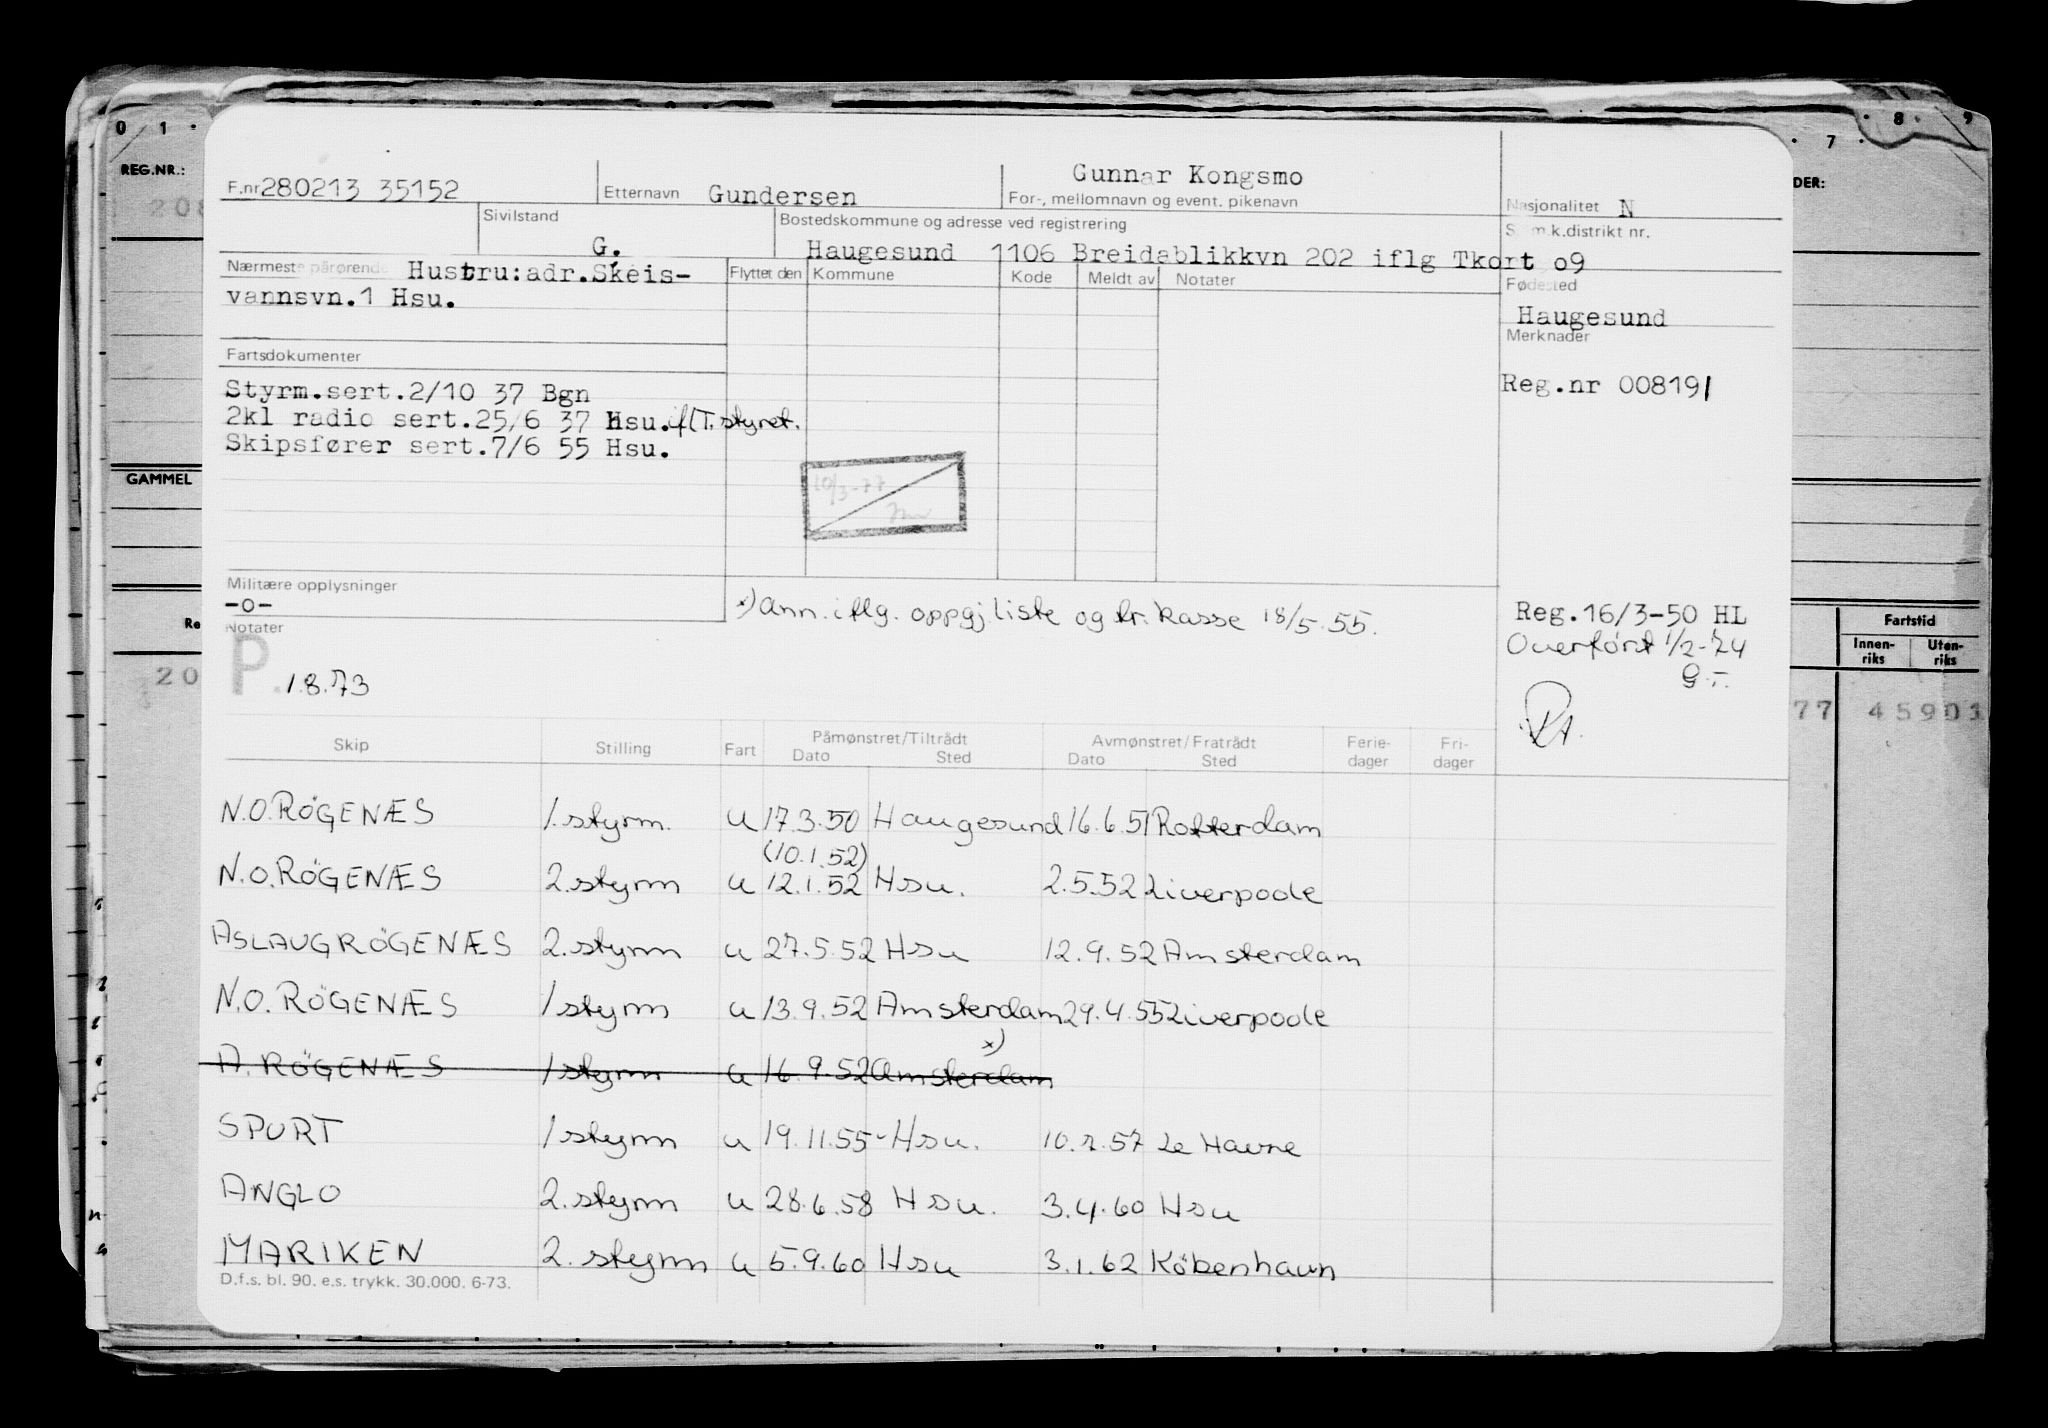 0 1 · · 7 · · 8 · 9
REG.NR.:
DER:
F.nr 280213 35152 Etternavn Gundersen Gunnar Kongsmo
For-, mellomnavn og event. pikenavn
Nasjonalitet N
Sivilstand G.
Bostedskommune og adresse ved registrering
Haugesund 1106 Breidablikkvn 202 iflg Tkort o9
S. m.k.distrikt nr.
Nærmeste pårørende Hustru:adr.Skeis-
vannsvn.1 Hsu.
Flyttet den Kommune Kode Meldt av Notater
Fødested
Haugesund
Merknader
Reg.nr 008191
Fartsdokumenter
Styrm.sert.2/10 37 Bgn
2kl radio sert.25/6 37 Hsu. ifl T. styret.
Skipsfører sert.7/6 55 Hsu.
10/3-77
GAMMEL
Militære opplysninger
-o-
x) ann. iflg. oppgj liste og tr. kasse 18/5.55.
Reg.16/3-50 HL
Overført 1/2-74
Notater
P. 1.8.73
Fartstid
Innen-
riks
Uten-
riks
20
77 45901
Skip Stilling Fart Påmønstret/Tiltrådt Avmønstret/Fratrådt Ferie-
dager Fri-
dager
Dato Sted Dato Sted
N.O. RÖGENÆS 1.styrm. u 17.3.50 Haugesund 16.6.51 Rotterdam
(10.1.52)
N.O. RÖGENÆS 2.styrm u 12.1.52 Hsu. 2.5.52 Liverpoole
ASLAUG RÖGENÆS 2.styrm u 27.5.52 Hsu 12.9.52 Amsterdam
N.O. RÖGENÆS 1styrm u 13.9.52 Amsterdam 29.4.55 Liverpoole
A. RÖGENÆS 1styrm u 16.9.52 Amsterdam x)
SPURT 1styrm u 19.11.55 Hsu. 10.7.57 Le Havre
ANGLO 2.styrm u 28.6.58 Hsu. 3.4.60 Hsu
MARIKEN 2.styrm u 5.9.60 Hsu 3.1.62 Köbenhavn
D.f.s. bl. 90. e.s. trykk. 30.000. 6-73.